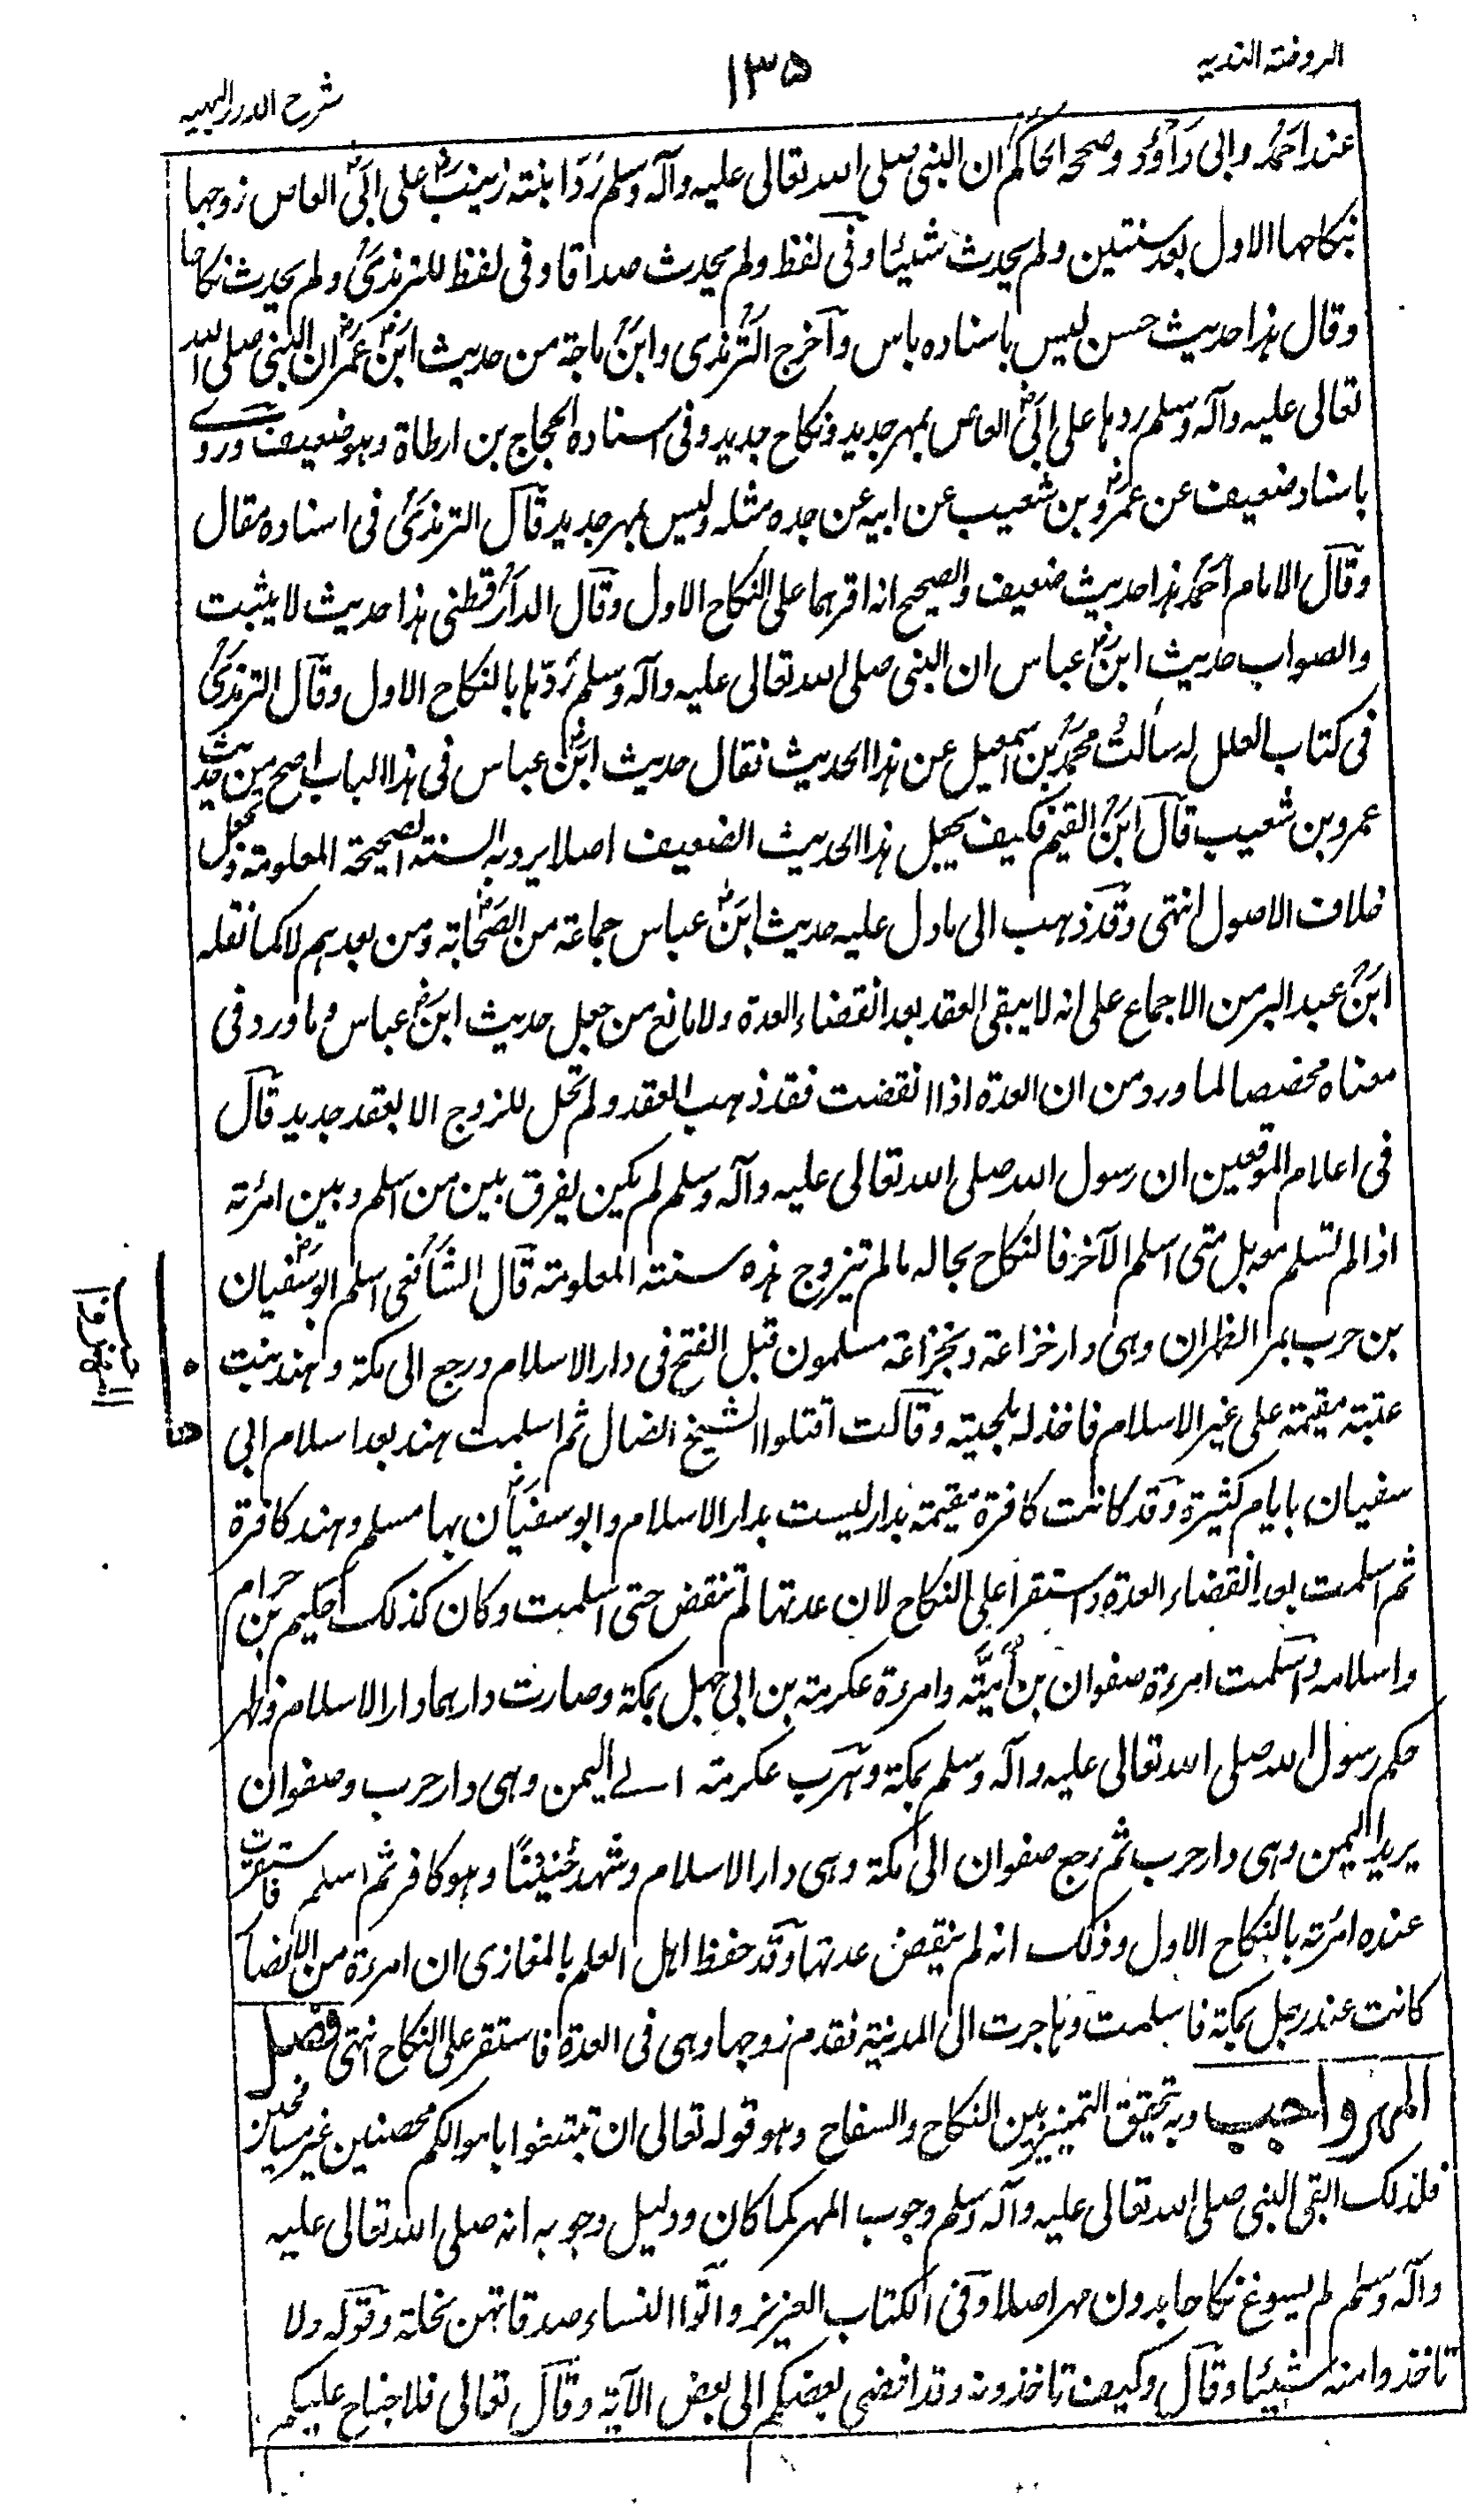 الروضة الندية
١٣٥
شرح الدرر البهية
عند احمد وابى داؤد وصححه الحاكم ان النبى صلى الله تعالى عليه وآله وسلم رد ابنته زينب على ابى العاص زوجها
بنكاحها الاول بعد سنتين ولم يحدث شيئا وفى لفظ ولم يحدث صداقا وفى لفظ للترمذى ولم يحدث نكاحا
وقال هذا حديث حسن ليس باسناده باس وآخرج الترمذى وابن ماجة من حديث ابن عمر ان النبى صلى الله
تعالى عليه وآله وسلم ردها على ابى العاص بمهر جديد ونكاح جديد وفى اسناده الحجاج بن ارطاة وهو ضعيف وروى
باسناد ضعيف عن عمرو بن شعيب عن ابيه عن جده مثله وليس بمهر جديد قال الترمذى فى اسناده مقال
وقال الامام احمد هذا حديث ضعيف والصحيح انه اقرهما على النكاح الاول وقال الدارقطنى هذا حديث لا يثبت
والصواب حديث ابن عباس ان النبى صلى الله تعالى عليه وآله وسلم ردها بالنكاح الاول وقال الترمذى
فى كتاب العلل له سالت محمد بن اسمعيل عن هذا الحديث فقال حديث ابن عباس فى هذا الباب اصح من حديث
عمرو بن شعيب قال ابن القيم فكيف يجعل هذا الحديث الضعيف اصلا يرد به السنة الصحيحة المعلومة وتجعل
خلاف الاصول انتهى وقد ذهب الى ما دل عليه حديث ابن عباس جماعة من الصحابة ومن بعدهم لا كما نقله
ابن عبد البر من الاجماع على انه لا يبقى العقد بعد انقضاء العدة ولا مانع من جعل حديث ابن عباس وما ورد فى
معناه مخصصا لما ورد من ان العدة اذا انقضت فقد ذهب العقد ولم تحل للزوج الا بعقد جديد قال
فى اعلام الموقعين ان رسول الله صلى الله تعالى عليه وآله وسلم لم يكن يفرق بين من اسلم وبين امرئته
اذا لم تسلم معه بل متى اسلم الآخر فالنكاح بحاله ما لم تتزوج هذه سنته المعلومة قال الشافعى اسلم ابو سفيان
بن حرب بمر الظهران وهى دار خزاعة وبخزاعة مسلمون قبل الفتح فى دار الاسلام ورجع الى مكة وهند بنت
عتبة مقيمة على غير الاسلام فاخذ له بلحيته وقالت اقتلوا الشيخ الضال ثم اسلمت هند بعد اسلام ابى
سفيان بايام كثيرة وقد كانت كافرة مقيمة بدار ليست بدار الاسلام وابو سفيان بها مسلم وهند كافرة
ثم اسلمت بعد انقضاء العدة واستقرا على النكاح لان عدتها لم تنقض حتى اسلمت وكان كذلك حكيم بن حرام
واسلامه واسلمت امرءة صفوان بن امية وامرءة عكرمة بن ابى جهل بمكة وصارت دارهما دار الاسلام وظهر
حكم رسول الله صلى الله تعالى عليه وآله وسلم بمكة وهرب عكرمة الے اليمن وهى دار حرب وصفوان
يريد اليمن وهى دار حرب ثم رجع صفوان الى مكة وهى دار الاسلام وشهد حنينًا وهو كافر ثم اسلم فاستقرت
عنده امرئته بالنكاح الاول وذلك انه لم ينقض عدتها وقد حفظ اهل العلم بالمغازى ان امرءة من الانصا
كانت عند رجل بمكة فاسلمت وهاجرت الى المدينة فقدم زوجها وهى فى العدة فاستقر على النكاح انتهى فصل
المهر واجب وبه تحقيق التميز بين النكاح والسفاح وهو قوله تعالى ان تبتغوا باموالكم محصنين غير مسافحين
فلذلك ابقى النبى صلى الله تعالى عليه وآله وسلم وجوب المهر كما كان ودليل وجوبه انه صلى الله تعالى عليه
وآله وسلم لم يسوغ نكاحا بدون مهر اصلا وفى الكتاب العزيز وآتوا النساء صدقاتهن نحلة وقوله ولا
تاخذوا منه شيئا وقال وكيف تاخذونه وقد افضى بعضكم الى بعض الآية وقال تعالى فلا جناح عليكم